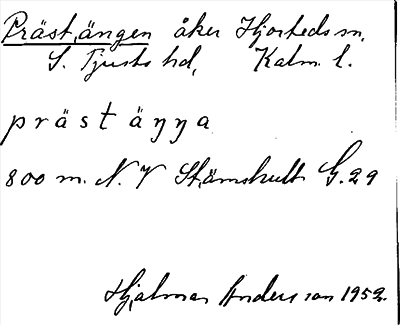 Prästängen åker Hjorteds sn,
S. Tjusts hd, Kalm. l.
präst äŋŋa
800 m. N. V Stämshult G. 29
Hjalmar Anderson 1952.